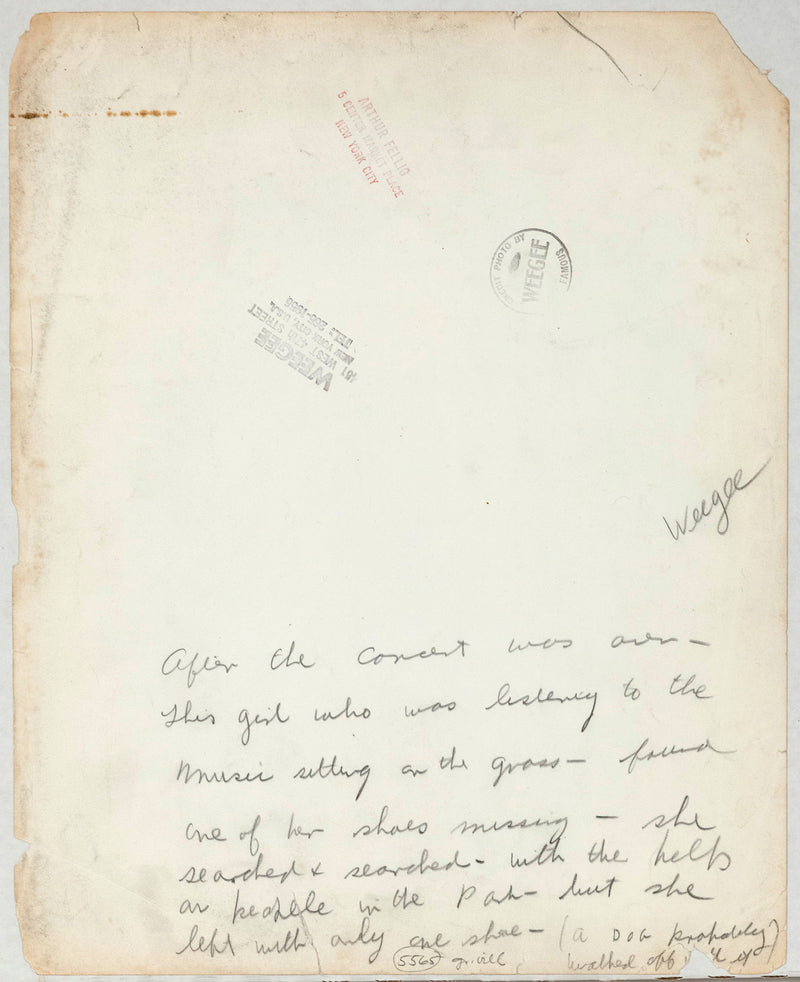 ARTHUR FELLIG
5 CENTER MARKET PLACE
NEW YORK CITY
CREDIT PHOTO BY
WEEGEE
FAMOUS
WEEGEE
451 WEST 47th STREET
NEW YORK CITY, U.S.A.
TEL: 265-1955
Weegee
After the concert was over—
This girl who was listening to the
music sitting on the grass— found
one of her shoes missing — she
searched & searched— with the help
on people in the Park— but she
left with only one shoe— (a DOG probably)
5565 walked off